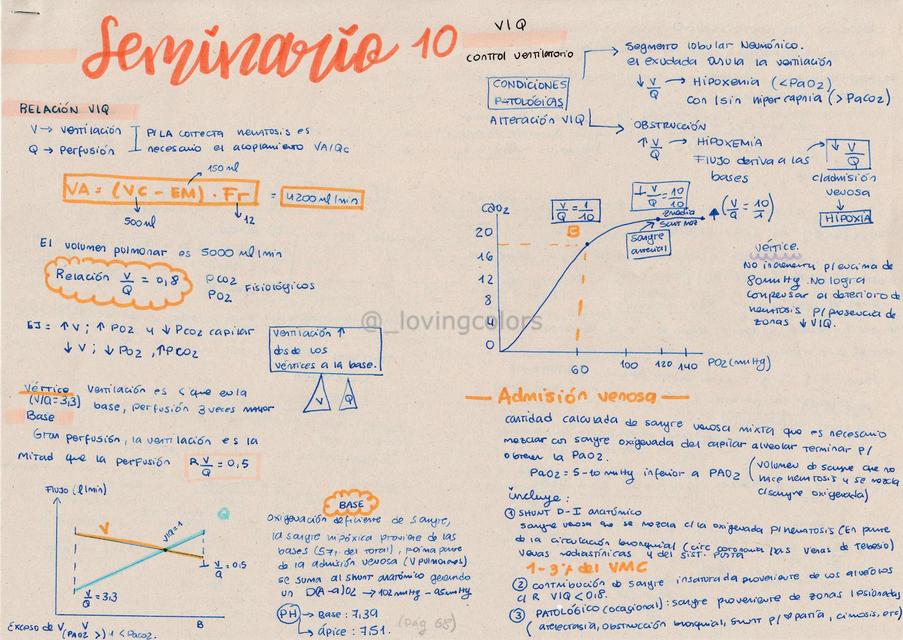 Seminario 10
RELACIÓN V/Q
V → ventilación
Q → perfusión
P/LA CORRECTA hematosis es
necesario el acoplamiento VA/Qc
150 ml
VA = (VC - EM) . Fr = 4200 ml/min
500 ml
12
El volumen pulmonar es 5000 ml/min
Relación V/Q = 0,8
PCO2
PO2
Fisiológicos
EJ = ↑V ; ↑ PO2 y ↓ PCO2 capilar
↓ V ; ↓ PO2 , ↑PCO2
ventilación ↑
desde los
vértices a la base.
V
Q
Vértice ventilación es < que en la
(V/Q=3,3) base, perfusión 3 veces mayor
Base
Gran perfusión, la ventilación es la
mitad que la perfusión R V/Q = 0,5
Flujo (l/min)
V
V/Q=1
Q
V/Q = 0,5
V/Q = 3,3
B
Exceso de V
V (PAO2 >) y < PACO2.
BASE
Oxigenación deficiente de sangre,
la sangre hipóxica proviene de las
bases (57% del total), forma parte
de la admisión venosa (V pulmones)
se suma al shunt anatómico generando
un D(A-a)O2 → 102 mmHg - 95 mmHg
PH → Base: 7,39
→ ápice: 7,51.
(Pág 68)
V/Q
CONTROL ventilatorio
CONDICIONES
PATOLÓGICAS
Alteración V/Q
Segmento lobular Neumónico.
el exudado anula la ventilación
↓ V/Q → HIPOXEMIA (<PaO2)
con/sin hipercapnia (>PaCO2)
OBSTRUCCIÓN
↑ V/Q → HIPOXEMIA
FLUJO deriva a las
bases
↓ V/Q
c/admisión
venosa
HIPOXIA
CaO2
20
16
12
8
4
0
60
100
120
140
PO2 (mmHg)
V/Q = 1/10
B
V/Q = 10/10
sangre
arterial
(V/Q = 10/1)
vértice.
No incrementa p/encima de
80 mmHg. No logra
compensar el deterioro de
hematosis p/presencia de
zonas ↓ V/Q.
@_lovingcolors
Admisión venosa
cantidad calculada de sangre venosa mixta que es necesario
mezclar con sangre oxigenada del capilar alveolar terminar p/
obtener la PaO2.
PaO2 = 5-10 mmHg inferior a PAO2 (volumen de sangre que no
hace hematosis y se mezcla
c/sangre oxigenada)
incluye:
① SHUNT D-I anatómico
sangre venosa que se mezcla c/la oxigenada p/hematosis (En parte
de la circulación bronquial (circ coronaria p/as venas de Tebesio)
venas mediastínicas y del sist. porta
1-3% del VMC
② CONTRIBUCIÓN de sangre insaturada proveniente de los alveolos
c/ R V/Q < 0,8.
③ PATOLÓGICO (ocasional): sangre proveniente de zonas lesionadas
(atelectasia, obstrucción bronquial, shunt p/ patía, cirrosis, etc)